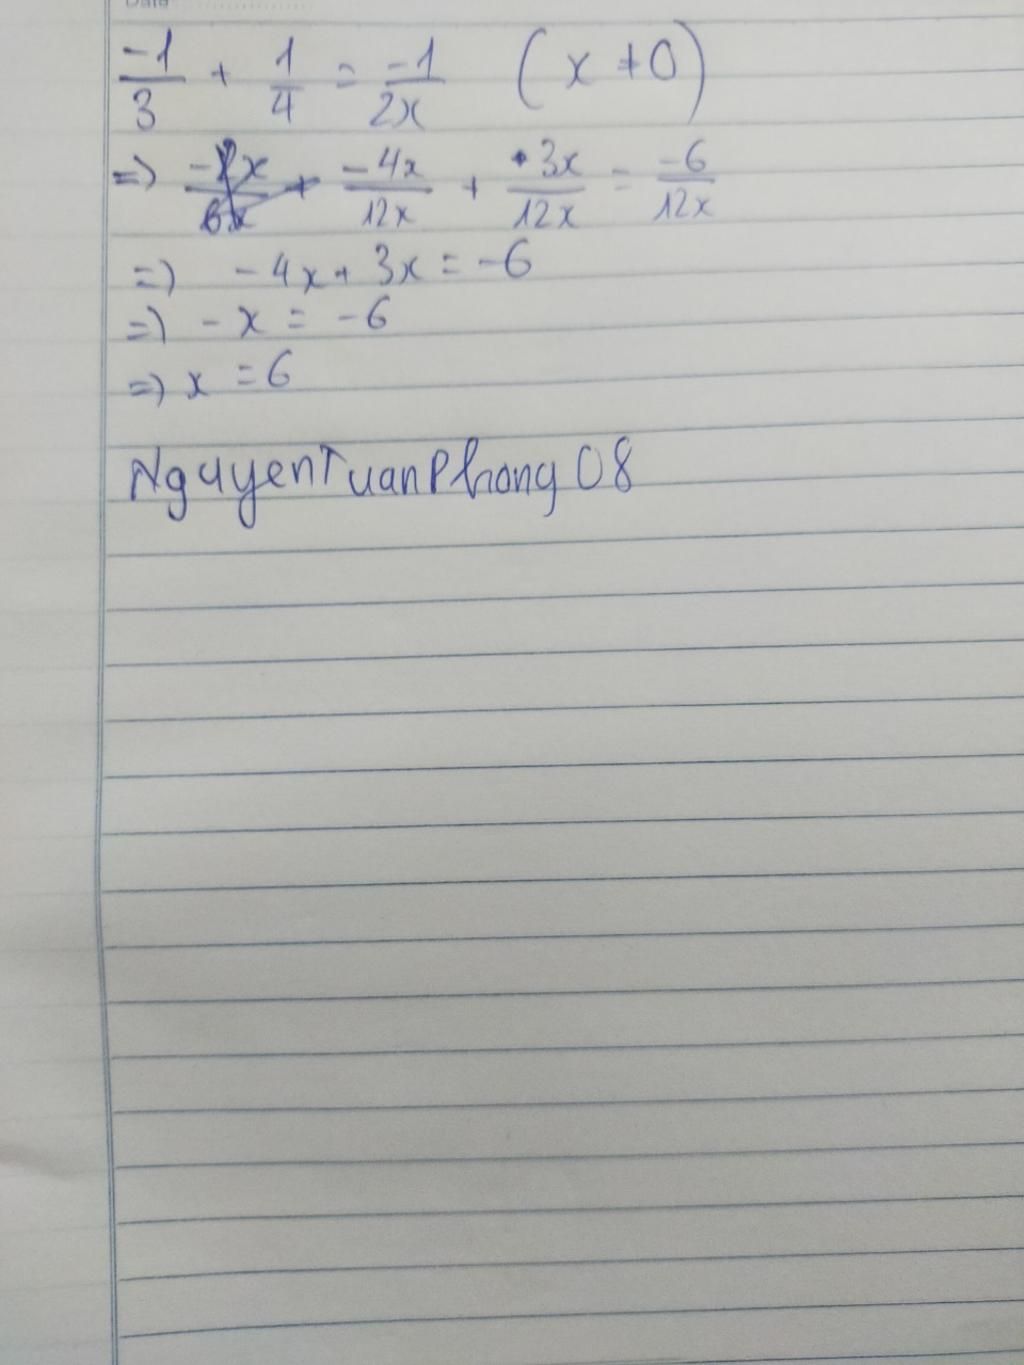 Date
-1/3 + 1/4 = -1/2x (x ≠ 0)
=> -4x/12x + 3x/12x = -6/12x
=> -4x + 3x = -6
=> -x = -6
=> x = 6
NguyenTuanPhong08